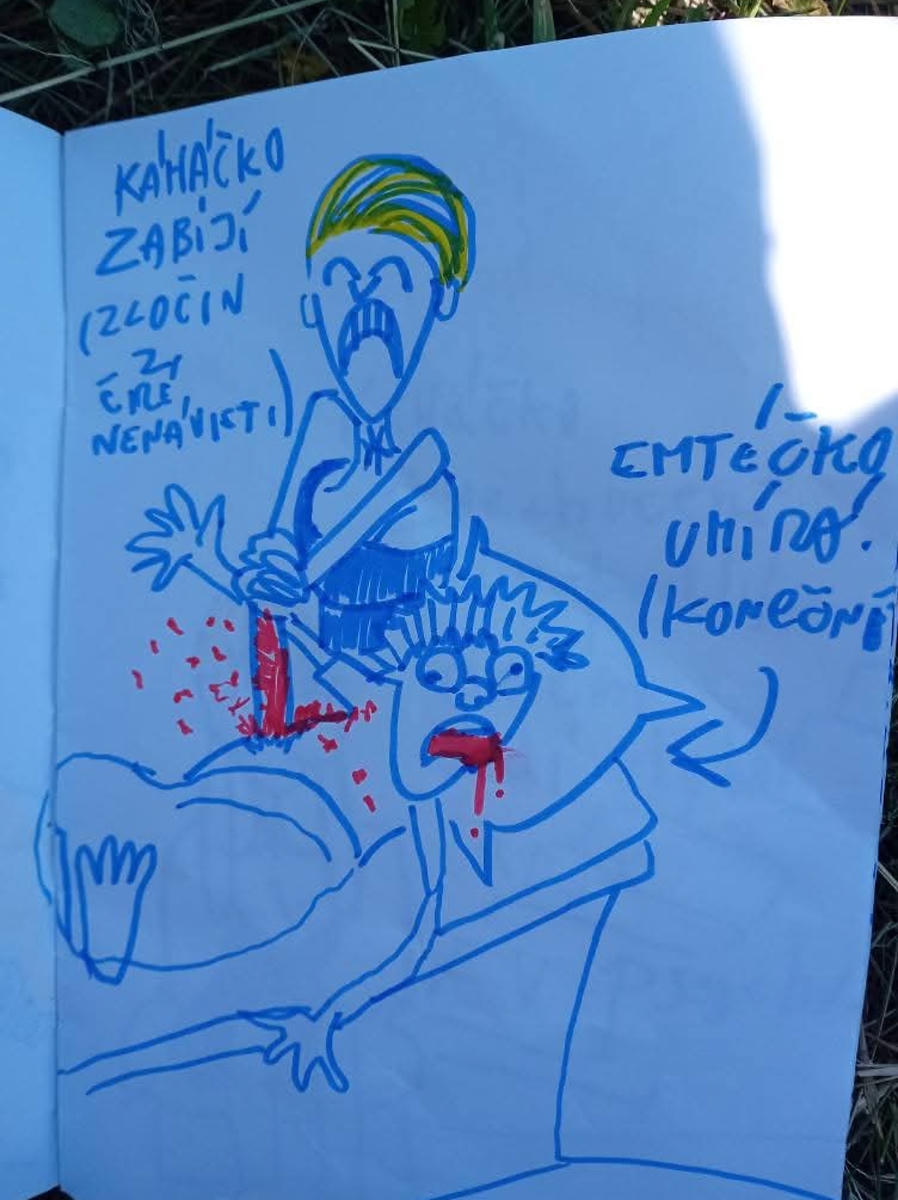 KÁHÁČKO
ZABÍJÍ
(ZLOČIN
Z
ČIRÉ
NENÁVISTI)
EMTÉČKO
UMÍRÁ.
(KONEČNĚ